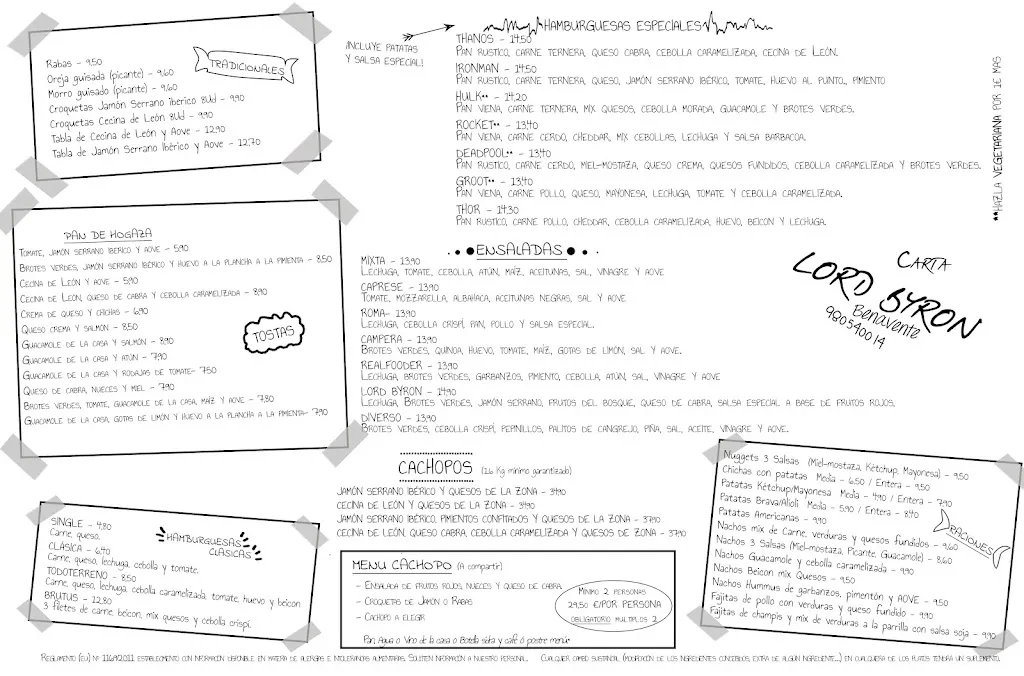 TRADICIONALES
Rabas - 9,50
Oreja guisada (picante) - 9,60
Morro guisado (picante) - 9,60
Croquetas Jamón Serrano iberico 8Ud - 9,90
Croquetas Cecina de León 8Ud - 9,90
Tabla de Cecina de León y Aove - 12,90
Tabla de Jamón Serrano Ibérico y Aove - 12,70
PAN DE HOGAZA
TOMATE, JAMÓN SERRANO IBERICO Y AOVE - 5,90
BROTES VERDES, JAMÓN SERRANO IBÉRICO Y HUEVO A LA PLANCHA A LA PIMIENTA - 8,50
CECINA DE LEÓN Y AOVE - 5,90
CECINA DE LEÓN, QUESO DE CABRA Y CEBOLLA CARAMELIZADA - 8,90
CREMA DE QUESO Y CHICHAS - 6,90
QUESO CREMA Y SALMÓN - 8,50
GUACAMOLE DE LA CASA Y SALMÓN - 8,90
GUACAMOLE DE LA CASA Y ATÚN - 7,90
GUACAMOLE DE LA CASA Y RODAJAS DE TOMATE- 7,50
QUESO DE CABRA, NUECES Y MIEL - 7,90
BROTES VERDES, TOMATE, GUACAMOLE DE LA CASA, MAÍZ Y AOVE - 7,80
GUACAMOLE DE LA CASA, GOTAS DE LIMÓN Y HUEVO A LA PLANCHA A LA PIMIENTA- 7,90
TOSTAS
HAMBURGUESAS
CLÁSICAS
SINGLE - 4,80
Carne, queso.
CLÁSICA - 6,40
Carne, queso, lechuga, cebolla y tomate.
TODOTERRENO - 8,50
Carne, queso, lechuga, cebolla caramelizada, tomate, huevo y beicon
BRUTUS - 12,80
3 filetes de carne beicon, mix quesos y cebolla crispí.
¡INCLUYE PATATAS
Y SALSA ESPECIAL!
HAMBURGUESAS ESPECIALES
THANOS - 14,50
PAN RUSTICO, CARNE TERNERA, QUESO CABRA, CEBOLLA CARAMELIZADA, CECINA DE LEÓN.
IRONMAN - 14,50
PAN RUSTICO, CARNE TERNERA, QUESO, JAMÓN SERRANO IBÉRICO, TOMATE, HUEVO AL PUNTO, PIMIENTO
HULK** - 14,20
PAN VIENA, CARNE TERNERA, MIX QUESOS, CEBOLLA MORADA, GUACAMOLE Y BROTES VERDES.
ROCKET** - 13,40
PAN VIENA, CARNE CERDO, CHEDDAR, MIX CEBOLLAS, LECHUGA Y SALSA BARBACOA.
DEADPOOL** - 13,40
PAN RUSTICO, CARNE CERDO, MIEL-MOSTAZA, QUESO CREMA, QUESOS FUNDIDOS, CEBOLLA CARAMELIZADA Y BROTES VERDES.
GROOT** - 13,40
PAN VIENA, CARNE POLLO, QUESO, MAYONESA, LECHUGA, TOMATE Y CEBOLLA CARAMELIZADA.
THOR - 14,30
PAN RUSTICO, CARNE POLLO, CHEDDAR, CEBOLLA CARAMELIZADA, HUEVO, BEICON Y LECHUGA.
**HAZLA VEGETARIANA POR 1€ MAS
ENSALADAS
MIXTA - 13,90
LECHUGA, TOMATE, CEBOLLA, ATÚN, MAÍZ, ACEITUNAS, SAL, VINAGRE Y AOVE
CAPRESE - 13,90
TOMATE, MOZZARELLA, ALBAHACA, ACEITUNAS NEGRAS, SAL Y AOVE
ROMA- 13,90
LECHUGA, CEBOLLA CRISPÍ, PAN, POLLO Y SALSA ESPECIAL.
CAMPERA - 13,90
BROTES VERDES, QUINOA, HUEVO, TOMATE, MAÍZ, GOTAS DE LIMÓN, SAL Y AOVE.
REALFOODER - 13,90
LECHUGA, BROTES VERDES, GARBANZOS, PIMIENTO, CEBOLLA, ATÚN, SAL, VINAGRE Y AOVE
LORD BYRON - 14,90
LECHUGA, BROTES VERDES, JAMÓN SERRANO, FRUTOS DEL BOSQUE, QUESO DE CABRA, SALSA ESPECIAL A BASE DE FRUTOS ROJOS.
DIVERSO - 13,90
BROTES VERDES, CEBOLLA CRISPÍ, PEPINILLOS, PALITOS DE CANGREJO, PIÑA, SAL, ACEITE, VINAGRE Y AOVE.
CARTA
LORD BYRON
Benavente
980540014
CACHOPOS (1,6 Kg mínimo garantizado)
JAMÓN SERRANO IBÉRICO Y QUESOS DE LA ZONA - 34,90
CECINA DE LEÓN Y QUESOS DE LA ZONA - 34,90
JAMÓN SERRANO IBÉRICO, PIMIENTOS CONFITADOS Y QUESOS DE LA ZONA - 37,90
CECINA DE LEÓN, QUESO CABRA, CEBOLLA CARAMELIZADA Y QUESOS DE ZONA - 37,90
MENU CACHOPO (A compartir)
- ENSALADA DE FRUTOS ROJOS, NUECES Y QUESO DE CABRA
- CROQUETAS DE JAMÓN O RABAS
- CACHOPO A ELEGIR
Pan, Agua o Vino de la casa o Botella sidra y café ó postre menú
MÍNIMO 2 PERSONAS
29,50 €/POR PERSONA
OBLIGATORIO MULTIPLOS 2
RACIONES
Nuggets 3 Salsas (Miel-mostaza, Kétchup, Mayonesa) - 9,50
Chichas con patatas Media - 6,50 / Entera - 9,50
Patatas Kétchup/Mayonesa Media - 4,90 / Entera - 7,90
Patatas Brava/Alioli Media - 5,90 / Entera - 8,40
Patatas Americanas - 9,90
Nachos mix de Carne, verduras y quesos fundidos - 9,60
Nachos 3 Salsas (Miel-mostaza, Picante, Guacamole) - 8,60
Nachos Guacamole y cebolla caramelizada - 9,90
Nachos Beicon mix Quesos - 9,50
Nachos Hummus de garbanzos, pimentón y AOVE - 9,50
Fajitas de pollo con verduras y queso fundido - 9,90
Fajitas de champis y mix de verduras a la parrilla con salsa soja - 9,90
REGLAMENTO (EU) Nº 1169/2011 ESTABLECIMIENTO CON INFORMACIÓN DISPONIBLE EN MATERIA DE ALERGIAS E INTOLERANCIAS ALIMENTARIAS. SOLICITEN INFORMACIÓN A NUESTRO PERSONAL. CUALQUIER CAMBIO SUSTANCIAL (MODIFICACIÓN DE LOS INGREDIENTES CONCEBIDOS, EXTRA DE ALGÚN INGREDIENTE...) EN CUALQUIERA DE LOS PLATOS TENDRÁ UN SUPLEMENTO.